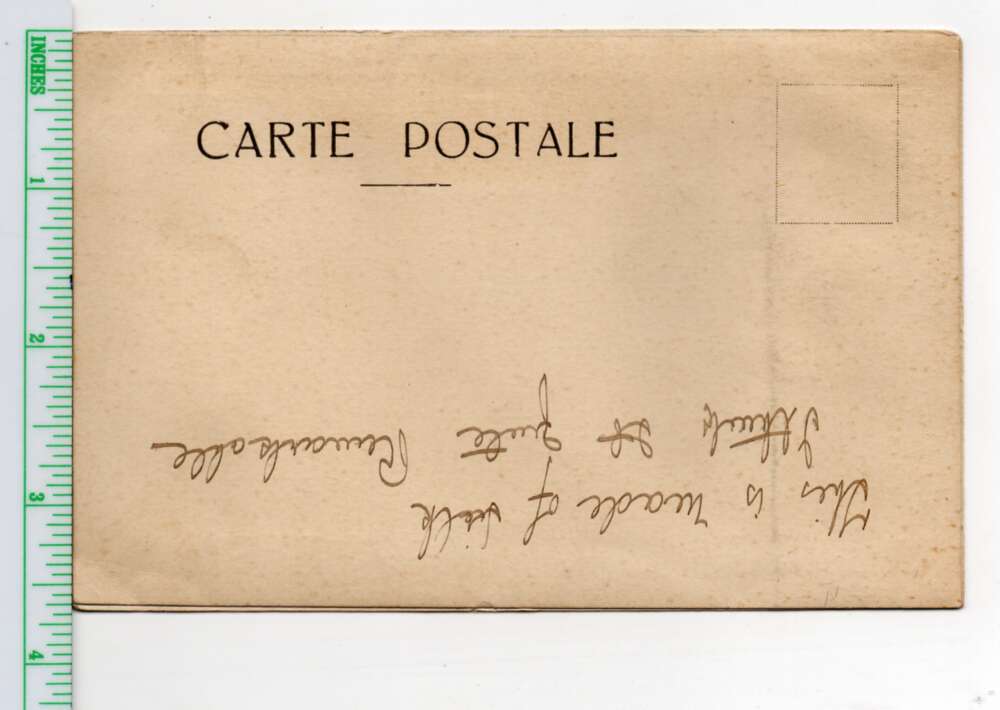 CARTE POSTALE
This is made of silk
I think it quite Remarksable
INCHES
1
2
3
4